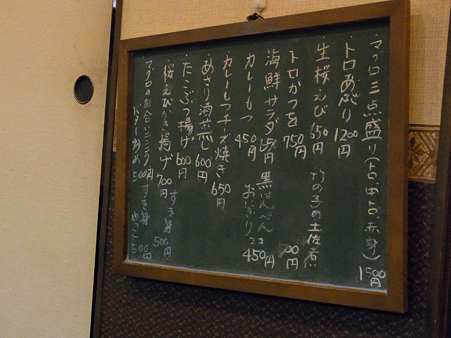 ・マグロ三点盛り(トロ・中トロ・赤身) 1500円
・トロあぶり 1200円
・生桜えび 650円
竹の子の土佐煮
・トロかつを 750円
・海鮮サラダ
黒はんぺん
・カレーもつ 450円
おにぎり 2コ 450円
・カレーもつチーズ焼き 650円
・あさり酒蒸し 600円
・たこぶつ揚げ 600円
・桜えびかき揚げ 700円
すき身 500円
・マグロの
バター炒め
すき身